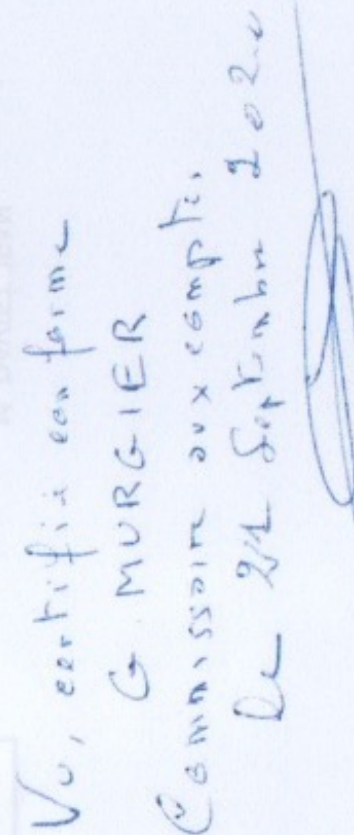 Vu, certifié conforme
G. MURGIER
Commissaire aux comptes
Le 21 Septembre 2020